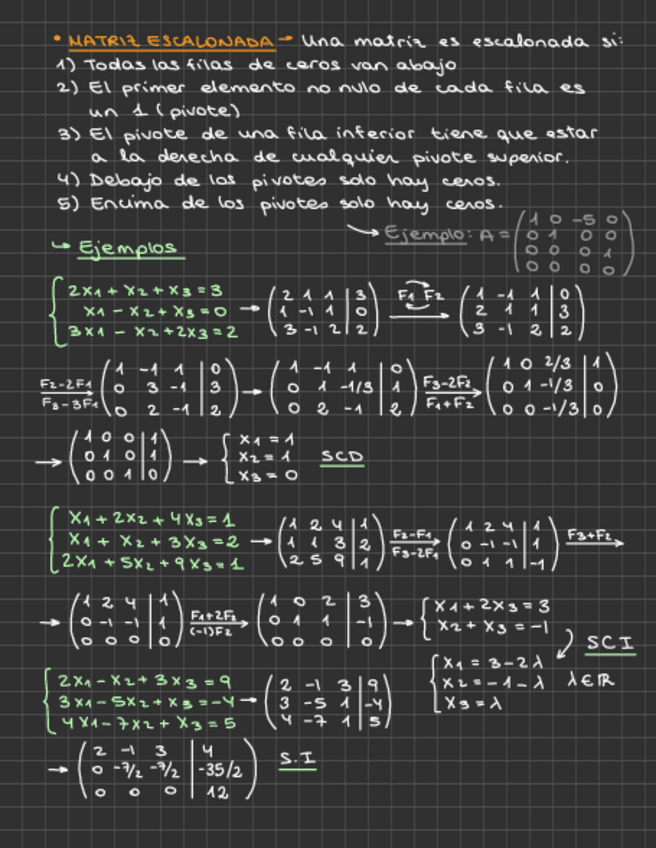 • MATRIZ ESCALONADA → Una matriz es escalonada si:
1) Todas las filas de ceros van abajo
2) El primer elemento no nulo de cada fila es
un 1 (pivote)
3) El pivote de una fila inferior tiene que estar
a la derecha de cualquier pivote superior.
4) Debajo de los pivotes solo hay ceros.
5) Encima de los pivotes solo hay ceros.
→ Ejemplo: A = (1 0 -5 0
0 1 0 0
0 0 0 1
0 0 0 0)
↳ Ejemplos
{2x1 + x2 + x3 = 3
x1 - x2 + x3 = 0
3x1 - x2 + 2x3 = 2
→ (2 1 1 | 3
1 -1 1 | 0
3 -1 2 | 2)
F1 F2 →
(1 -1 1 | 0
2 1 1 | 3
3 -1 2 | 2)
F2-2F1
F3-3F1 →
(1 -1 1 | 0
0 3 -1 | 3
0 2 -1 | 2)
→ (1 -1 1 | 0
0 1 -1/3 | 1
0 2 -1 | 2)
F3-2F2
F1+F2 →
(1 0 2/3 | 1
0 1 -1/3 | 0
0 0 -1/3 | 0)
→ (1 0 0 | 1
0 1 0 | 1
0 0 1 | 0)
→ {x1 = 1
x2 = 1
x3 = 0
SCD
{x1 + 2x2 + 4x3 = 1
x1 + x2 + 3x3 = 2
2x1 + 5x2 + 9x3 = 1
→ (1 2 4 | 1
1 1 3 | 2
2 5 9 | 1)
F2-F1
F3-2F1 →
(1 2 4 | 1
0 -1 -1 | 1
0 1 1 | -1)
F3+F2 →
→ (1 2 4 | 1
0 -1 -1 | 1
0 0 0 | 0)
F1+2F2
(-1)F2 →
(1 0 2 | 3
0 1 1 | -1
0 0 0 | 0)
→ {x1 + 2x3 = 3
x2 + x3 = -1
SCI
{x1 = 3-2λ
x2 = -1-λ λ∈ℝ
x3 = λ
{2x1 - x2 + 3x3 = 9
3x1 - 5x2 + x3 = -4
4x1 - 7x2 + x3 = 5
→ (2 -1 3 | 9
3 -5 1 | -4
4 -7 1 | 5)
→ (2 -1 3 | 4
0 -7/2 -7/2 | -35/2
0 0 0 | 12)
S.I